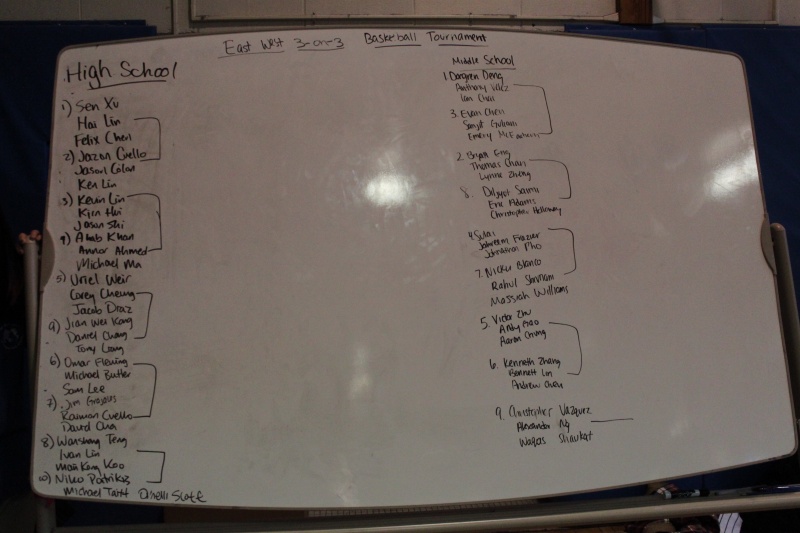 East West 3-on-3 Basketball Tournament
High School
1) Sen Xu
Hai Lin
Felix Chen
2) Jazon Cuello
Jason Colon
Ken Lin
3) Kevin Lin
Kien Hui
Jason Shi
4) Ahab Khan
Annor Ahmed
Michael Ma
5) Uriel Weir
Corey Cheung
Jacob Diaz
9) Jian Wei Kang
Daniel Chang
Tony Liang
6) Omar Fleming
Michael Butler
Sam Lee
7) Jim
Raimon Cuello
David Cha
8) Wanshang Teng
Ivan Lin
Man Kong Koo
10) Niko
Michael Taitt
Middle School
1. Dongren Deng
Anthony Valez
Ian Chai
3. Evan Chen
Sanjit
Emery
2. Bryan Eng
Thomas Chan
Lynne Zheng
8. Diljyot Saimi
Eric Adams
Christopher Holloway
4. Sulai
Jahreem Frazier
Johnathan Pho
7. Nicku Blanco
Rahul
Massiah Williams
5. Victor Zhu
Andy
Aaron Chung
6. Kenneth Zhang
Bennett Lin
Andrew Chen
9. Christopher Vazquez
Alexander Ng
Waqas Shaukat